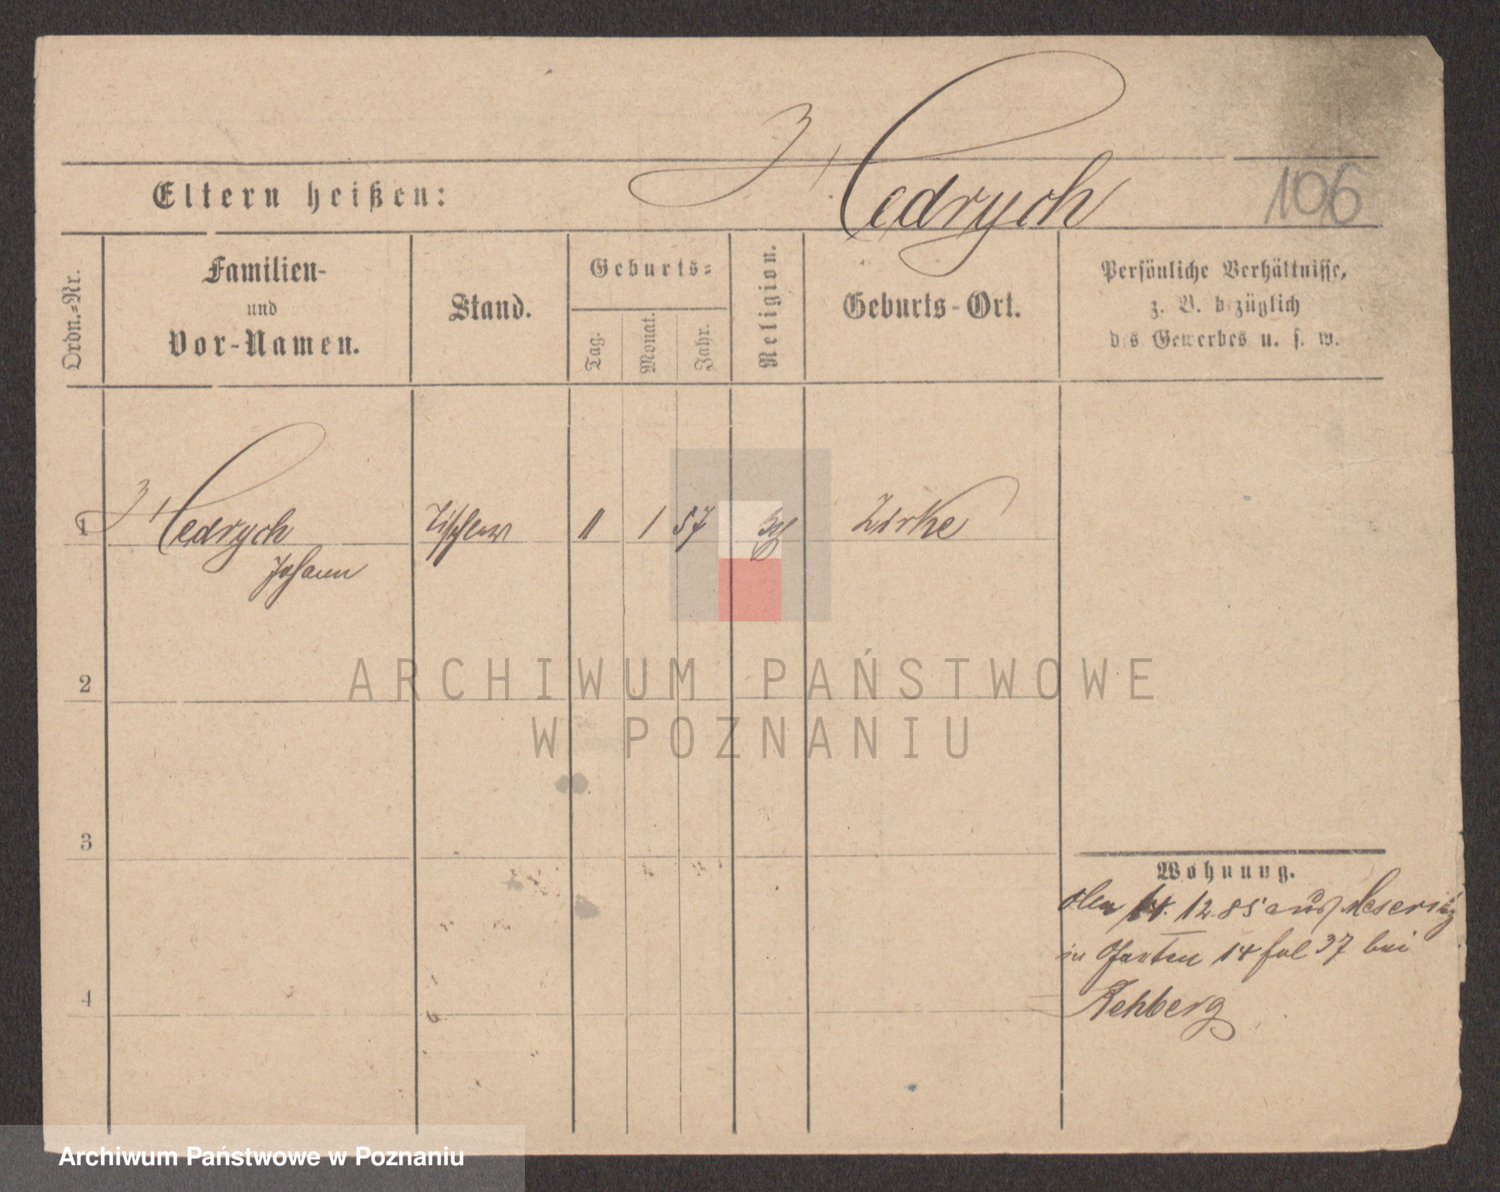 Cedrych
106
Eltern heißen:
Ordn.-Nr.
Familien-
und
Vor-Namen.
Stand.
Geburts-
Tag.
Monat.
Jahr.
Religion.
Geburts-Ort.
Persönliche Verhältnisse,
z. B. bezüglich
des Gewerbes u. s. w.
1
Cedrych
Johann
Tischler
11
1
57
Zirke
2
3
4
ARCHIWUM PAŃSTWOWE
W POZNANIU
Wohnung.
den 14. 12. 85 aus Meseritz
in 14 fol 37 bei
Rehberg
Archiwum Państwowe w Poznaniu